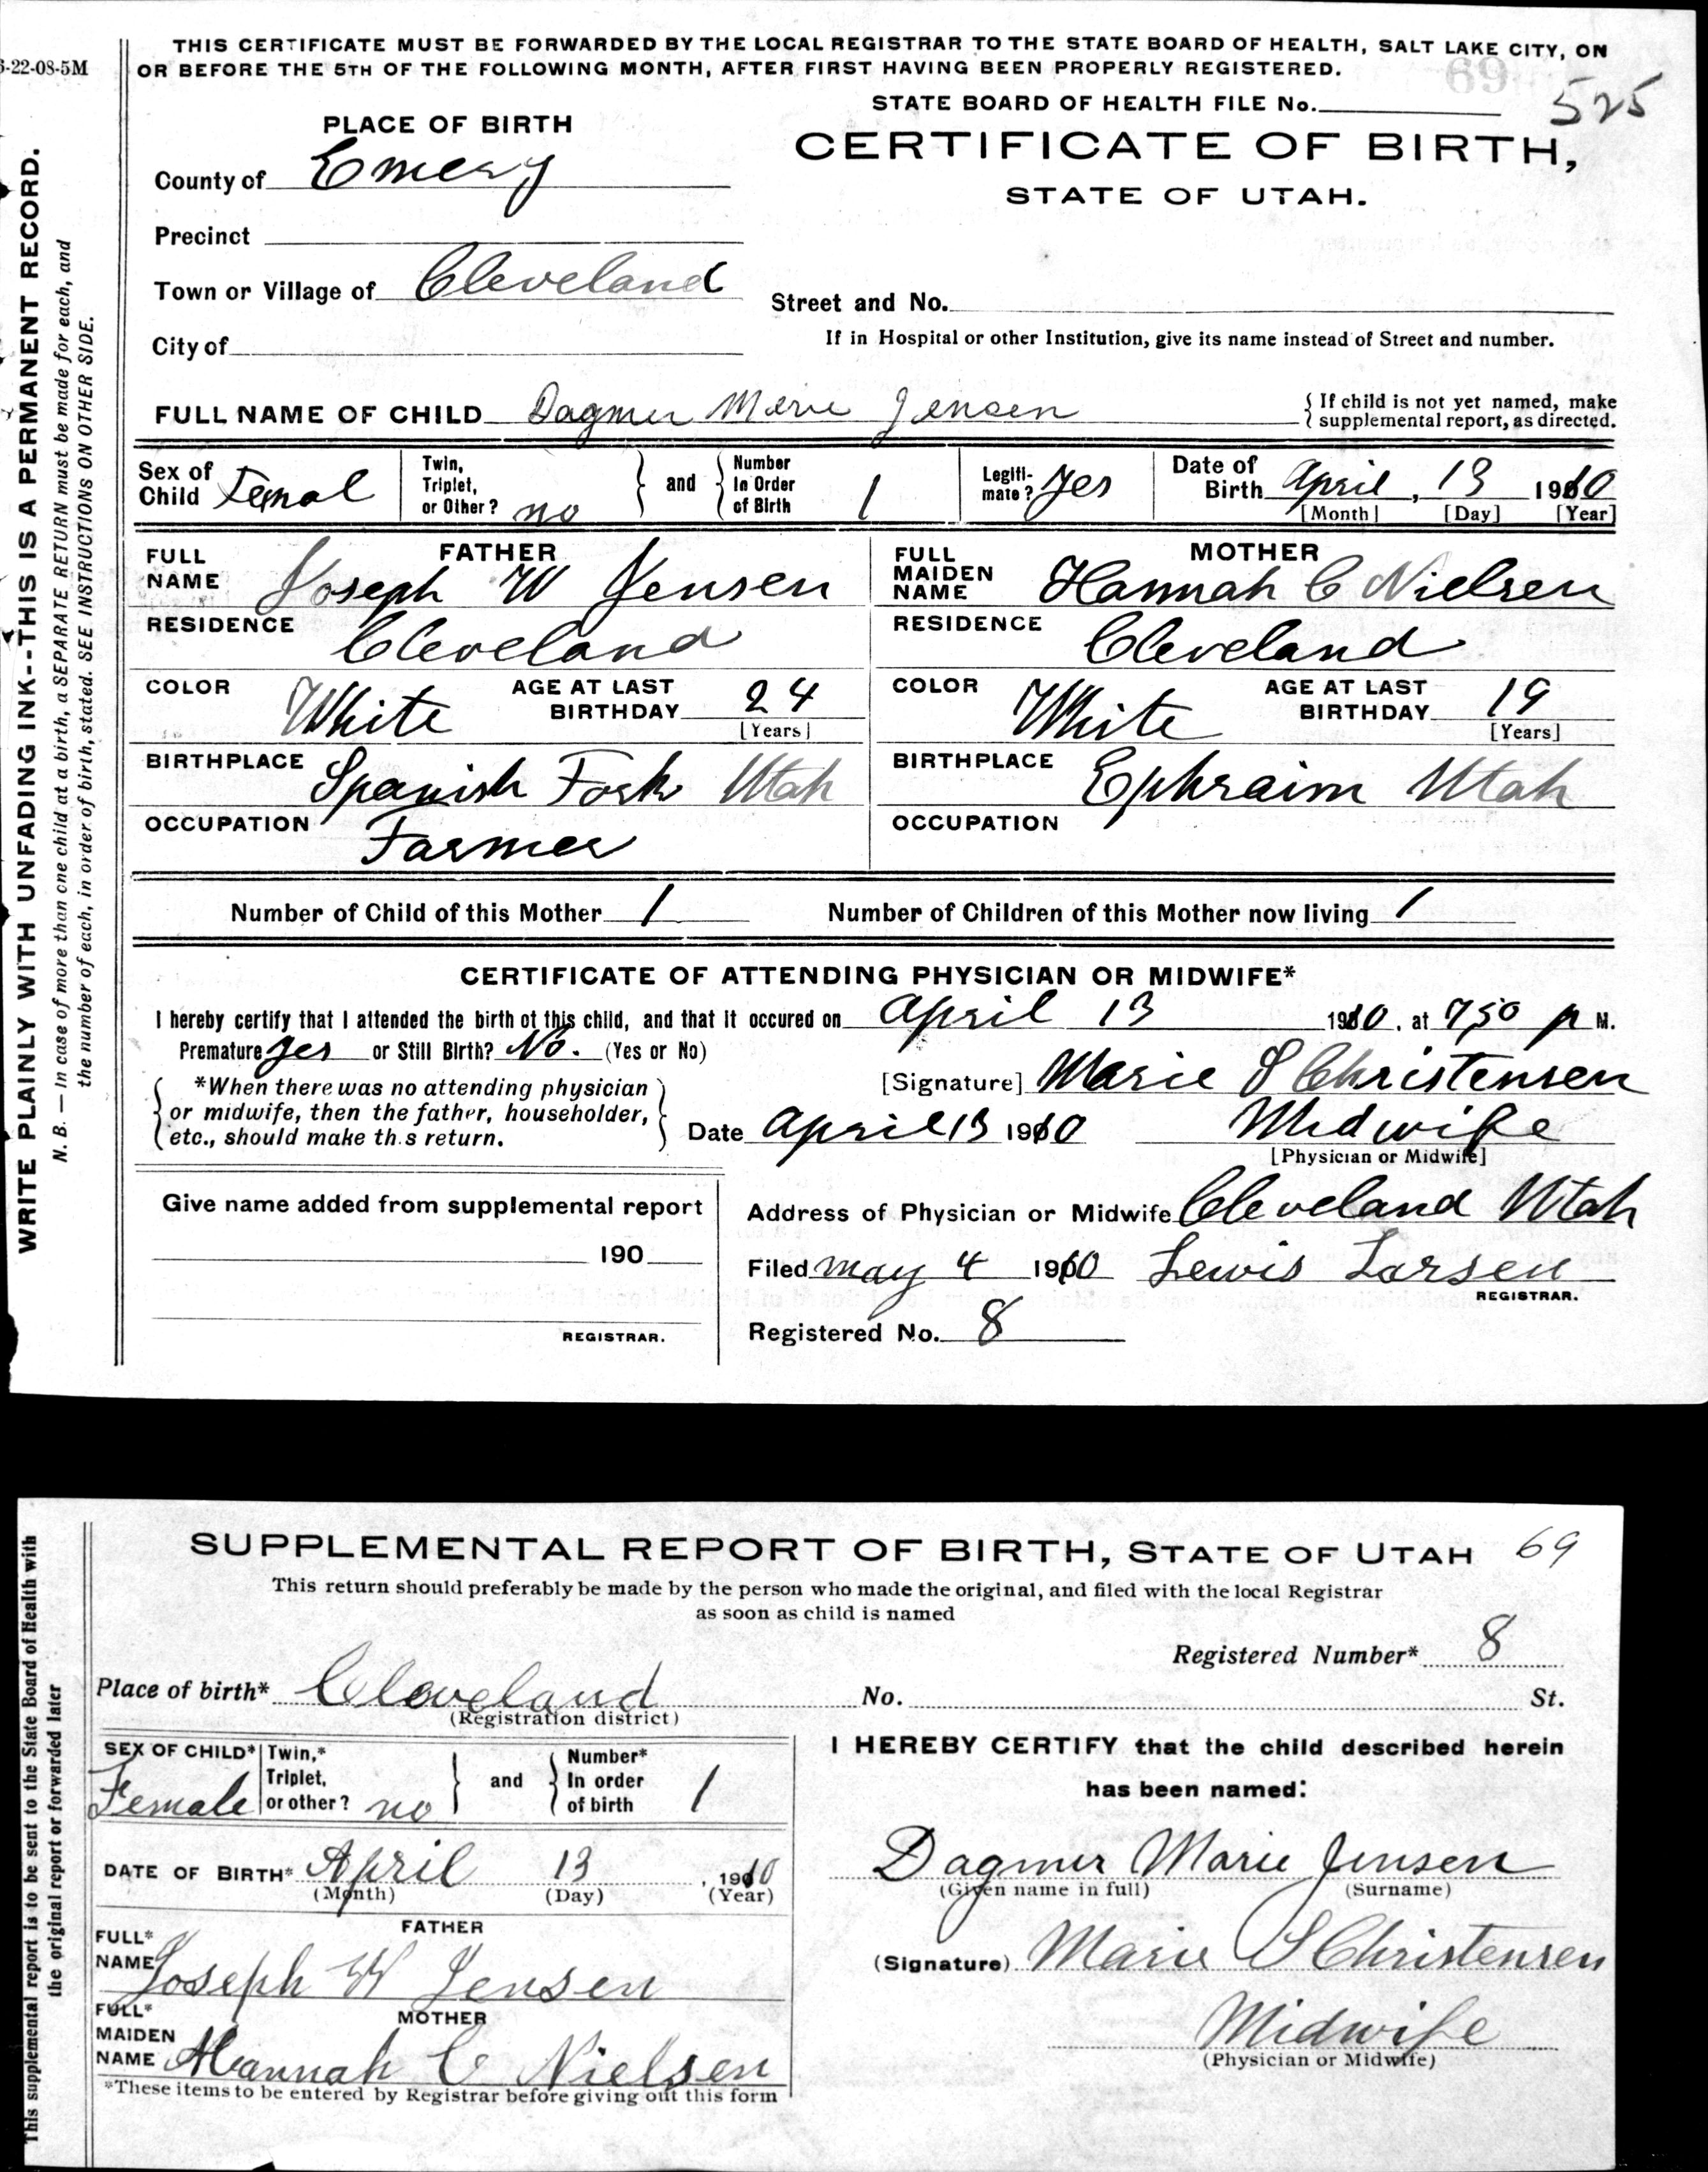 THIS CERTIFICATE MUST BE FORWARDED BY THE LOCAL REGISTRAR TO THE STATE BOARD OF HEALTH, SALT LAKE CITY, ON
OR BEFORE THE 5TH OF THE FOLLOWING MONTH, AFTER FIRST HAVING BEEN PROPERLY REGISTERED.
-22-08-5M
69
STATE BOARD OF HEALTH FILE No. 525
PLACE OF BIRTH
CERTIFICATE OF BIRTH,
STATE OF UTAH.
County of Emery
Precinct
Town or Village of Cleveland
Street and No.
If in Hospital or other Institution, give its name instead of Street and number.
City of
FULL NAME OF CHILD Dagmer Marie Jensen
If child is not yet named, make
supplemental report, as directed.
Sex of Child Femal
Twin, Triplet, or Other? no
and Number In Order of Birth 1
Legitimate? yes
Date of Birth April, 13 1910
[Month] [Day] [Year]
FATHER
FULL NAME Joseph W Jensen
RESIDENCE Cleveland
COLOR White AGE AT LAST BIRTHDAY 24
[Years]
BIRTHPLACE Spanish Fork Utah
OCCUPATION Farmer
MOTHER
FULL MAIDEN NAME Hannah C Nielsen
RESIDENCE Cleveland
COLOR White AGE AT LAST BIRTHDAY 19
[Years]
BIRTHPLACE Ephraim Utah
OCCUPATION
Number of Child of this Mother 1 Number of Children of this Mother now living 1
CERTIFICATE OF ATTENDING PHYSICIAN OR MIDWIFE*
I hereby certify that I attended the birth of this child, and that it occured on April 13 1910, at 7,50 p M.
Premature yes or Still Birth? No. (Yes or No)
*When there was no attending physician
or midwife, then the father, householder,
etc., should make th.s return.
[Signature] Marie S Christensen
Date April 13 1910 Midwife
[Physician or Midwife]
Give name added from supplemental report
190
REGISTRAR.
Address of Physician or Midwife Cleveland Utah
Filed may 4 1910 Lewis Larsen
REGISTRAR.
Registered No. 8
WRITE PLAINLY WITH UNFADING INK--THIS IS A PERMANENT RECORD.
N. B. — In case of more than one child at a birth, a SEPARATE RETURN must be made for each, and
the number of each, in order of birth, stated. SEE INSTRUCTIONS ON OTHER SIDE.
SUPPLEMENTAL REPORT OF BIRTH, STATE OF UTAH 69
This return should preferably be made by the person who made the original, and filed with the local Registrar
as soon as child is named
Registered Number* 8
Place of birth* Cleveland No. St.
(Registration district)
SEX OF CHILD* Female
Twin,* Triplet, or other? no
and Number* In order of birth 1
DATE OF BIRTH* April 13, 1910
(Month) (Day) (Year)
FATHER
FULL* NAME Joseph W Jensen
MOTHER
FULL* MAIDEN NAME Hannah C Nielsen
*These items to be entered by Registrar before giving out this form
I HEREBY CERTIFY that the child described herein
has been named:
Dagmer Marie Jensen
(Given name in full) (Surname)
(Signature) Marie S Christensen
Midwife
(Physician or Midwife)
This supplemental report is to be sent to the State Board of Health with
the original report or forwarded later